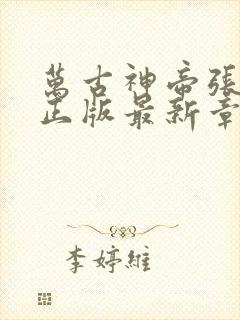 萬古神帝張
正版最新章
李婷維